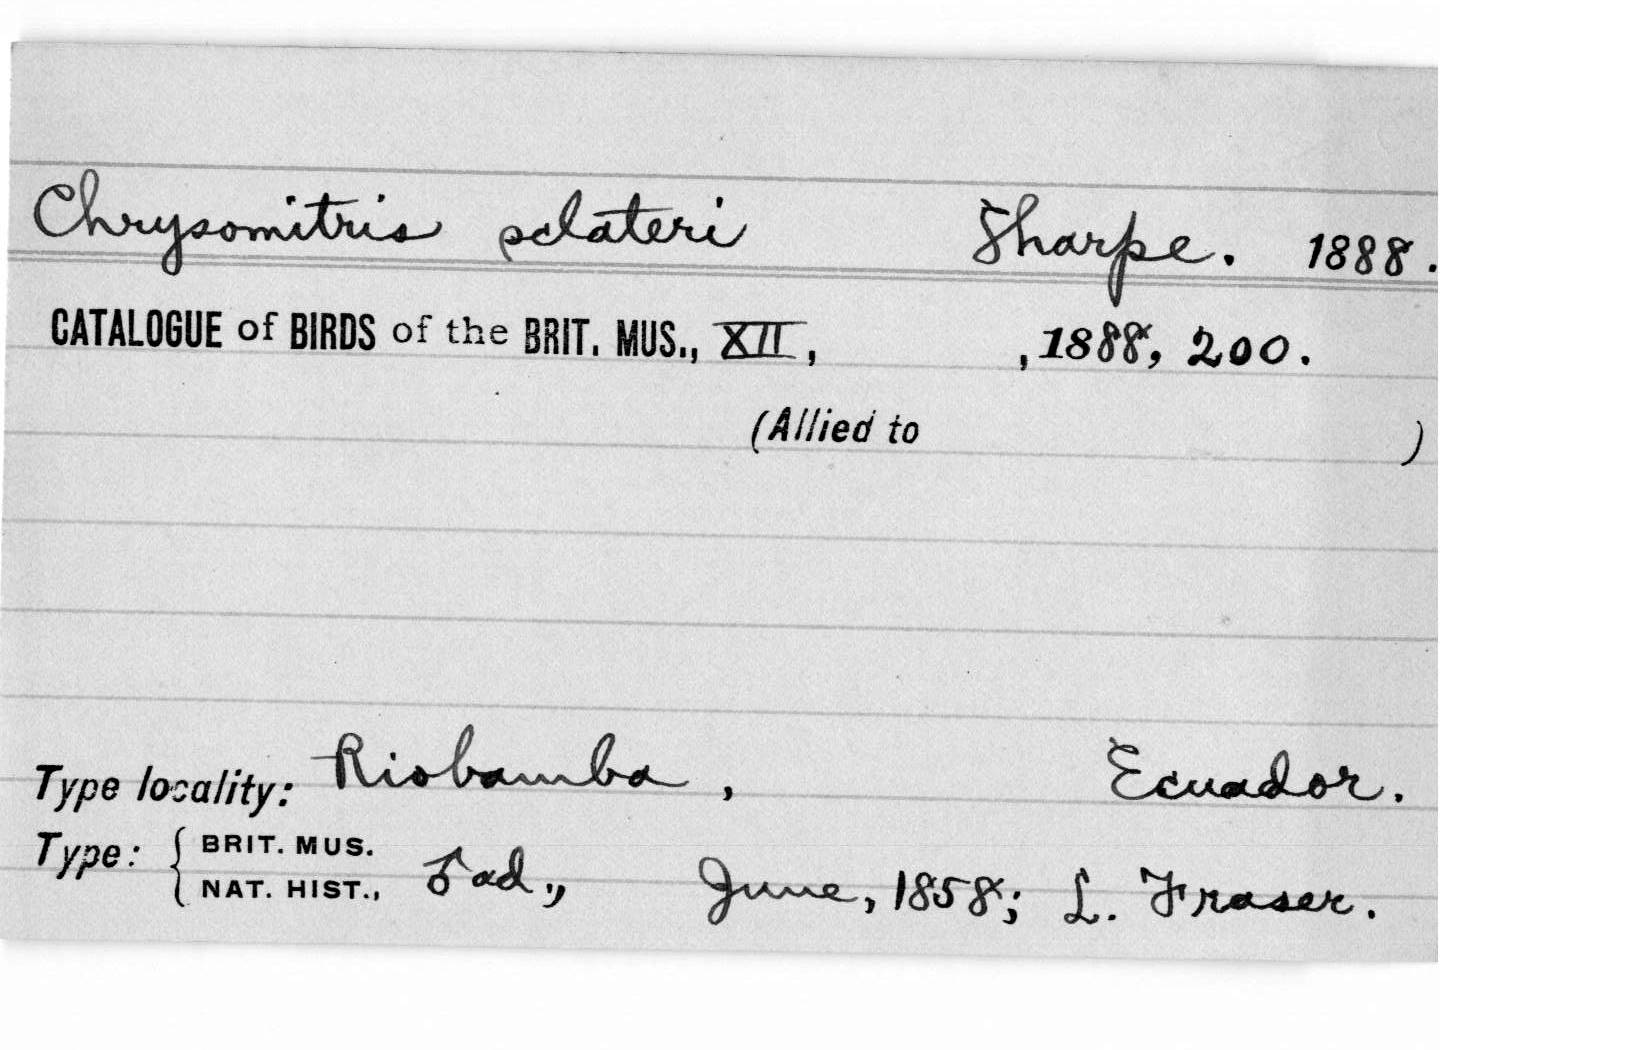 Chrysomitris sclateri Sharpe. 1888.
CATALOGUE of BIRDS of the BRIT. MUS., XII, , 1888, 200.
(Allied to )
Type locality: Riobamba, Ecuador.
Type: { BRIT. MUS. NAT. HIST., ♂ ad., June, 1858; L. Fraser.